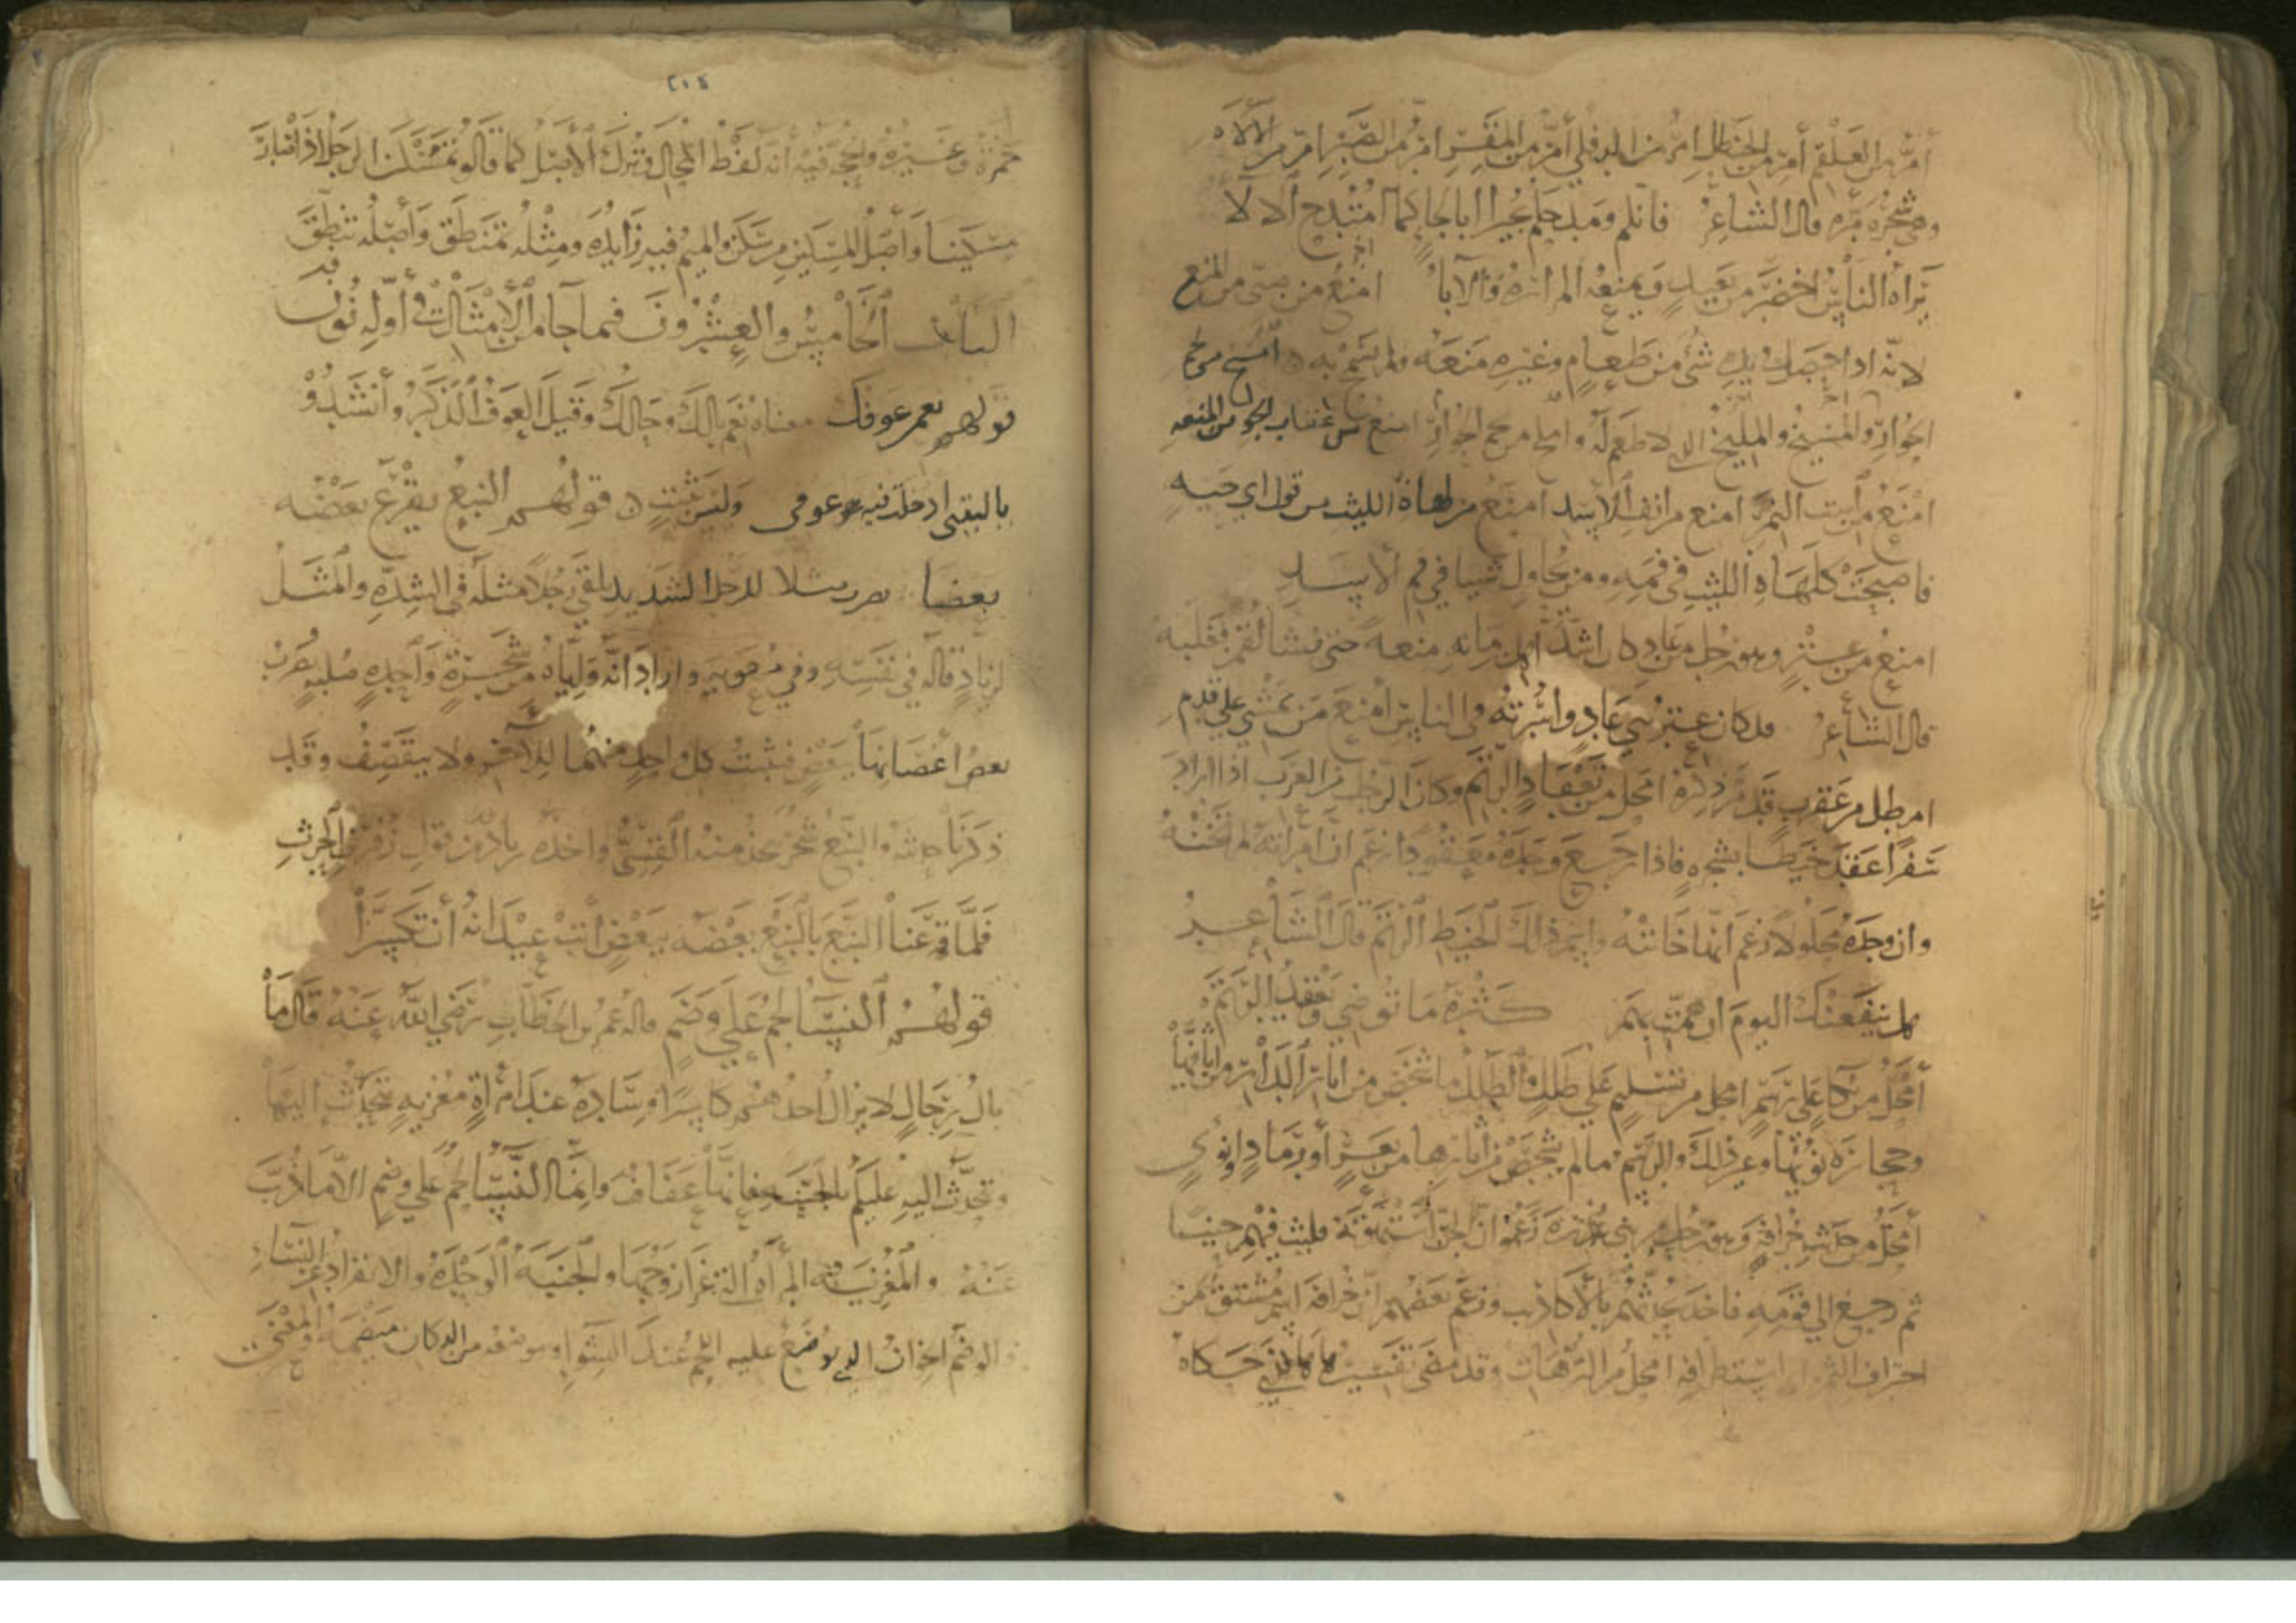 أمرّ من العلقم أمرّ من الحنظل امرّ من الدفلى أمرّ من المقر امرّ من الصبر امرّ من الألاءه
وهى شجره مره قال الشاعر فانكم ومدحكم بجيرا ابا لجا كما امتدح الالا
يراه الناس اخضر من بعيد وتمنعه المراره والاباء امنع من صبى من المنع
لانه اذا حصل فى يده شئ من طعام وغيره منعه ولم يسمح به أمسخ من لحم
الحوار والمسيخ والمليخ الذى لا طعم له واملخ من لحم الحوار امنع من عقاب الجو من المنعه
امنع من است النمر امنع من انف الاسد امنع من لهاة الليث من قول ابي حيه
فاصبحت كلهاة الليث فى فمه ومن يحاول شيا في فم الاسد
امنع من عنز وهو رجل من عاد كان اشد اهل زمانه منعه حتى نشأ لقمن فغلبه
قال الشاعر قد كان عنز بني عاد واسرته فى الناس امنع من يمشي على قدم
امطل من عقرب قد مر ذكره امحل من تعقاد الرتم وكان الرجل من العرب اذا اراد
سفرا عقد خيطا بشجره فاذا رجع ووجده معقودا زعم ان امراته لم تخنه
وان وجده محلولا زعم انها خانته واسم ذلك الخيط الرتم قال الشاعر
هل ينفعنك اليوم ان همت بهم كثرة ما توصي وتعقد الرتم
أمحل من بكا على رسم امحل من تسليم على طلل والطلل ما شخص من اثار الدار من اثافيها
وحجارة نويها وغير ذلك والرسم ما لم يشخص من اثارها من بعر أو رماد او نوى
أمحل من حديث خرافه وهو رجل من بنى عذره زعموا ان الجن استهوته فلبث فيهم حينا
ثم رجع الى قومه فاخذ يحدثهم بالاكاذيب وزعم بعضهم ان خرافه اسم مشتق من
اختراف الثمر اى استطرافه امحل من الترهات وقد مضى تفسيرها حكاه
٢١٤
حمزة وغيره والحجه فيه انه لفظ المحال فترك الأصل كما قالوا تمسكن الرجل اذا صار
مسكينا وأصل المسكين من سكن والميم فيه زايده ومثله تمنطق وأصله تنطق
الباب الخامس والعشرون فيما جا من الامثال فى أوله نون
قولهم نعم عوفك معناه نعم بالك وحالك وقيل العوف الذكر وأنشدوا
وليس بثبت قولهم النبع يقرع بعضه
بعضا يضرب مثلا للرجل الشديد يلقى رجلا مثله فى الشده والمثل
لزياد قاله في نفسه وفي معويه واراد انه واياه من شجرة واحده صلبه يقرع
بعض أغصانها بعض فيثبت كل واحد منهما للآخر ولا ينقصف وقد
ذكرنا حديثه والنبع شجر يتخذ منه القسي واخذه زياد من قول زفر بن الحرث
فلما قرعنا النبع بالنبع بعضه ببعض أبت عيدانه أن تكسرا
قولهم النسا لحم على وضم قاله عمر بن الخطاب رضي الله عنه قال ما
بال رجال لا يزال احدهم كاسرا وساده عند امرأة مغزيه يتحدث اليها
وتحدث اليه عليكم بالجنبه فانها عفاف وانما النسا لحم على وضم الا ما ذب
عنه والمغزيه المرأه التى غزا زوجها والجنبه الوحده والانفراد عن النساء
والوضم الخوان الذي يوضع عليه اللحم عند الشوا وموضعه من الدكان